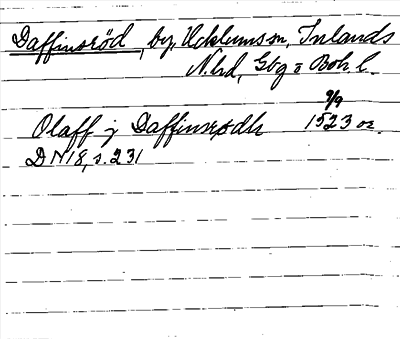 Daffinsröd, by, Ucklums sn, Inlands
N. hd, Gbg o Boh l.
Olaff j Daffinsrødh 9/9 1523 or.
DN 18, s. 231